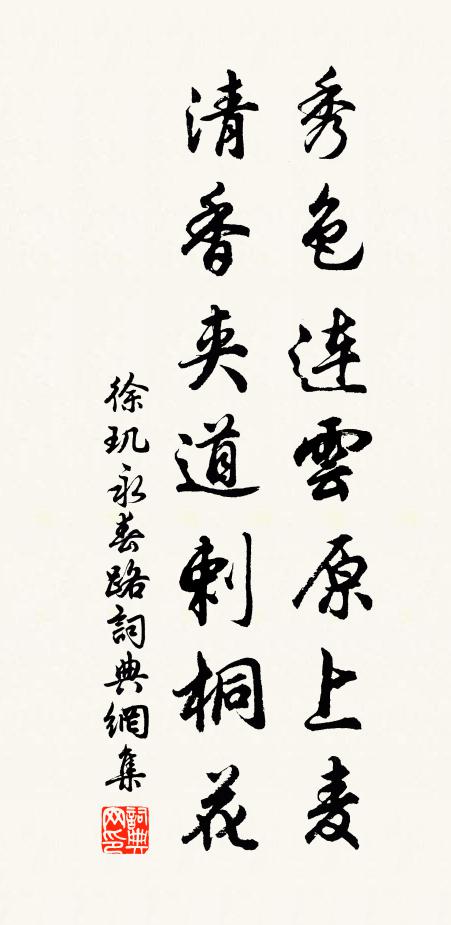 秀色連雲原上麦
清香夹道刺桐花
徐玑永春路詞典網集
詞典网印